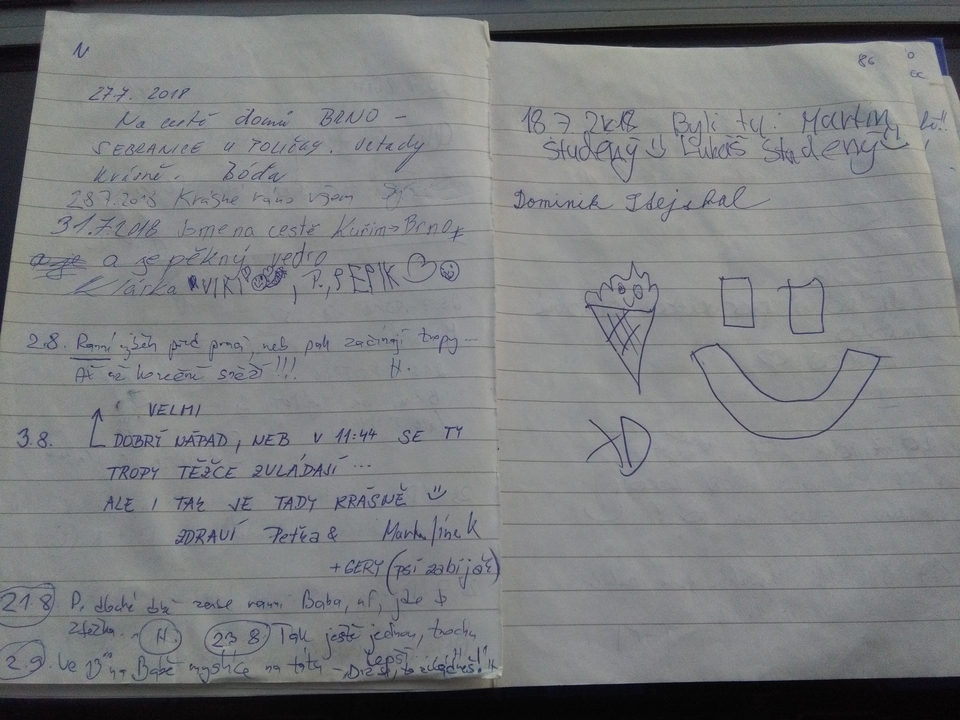 27.7. 2018
Na cestě domů BRNO -
SEBRANICE U POLIČKY. Všady
krásně. Bóďa
28.7.2018 Krásné ráno všem
31.7.2018 Jsme na cestě Kuřim->Brno
a je pěkný vedro
Klárka VIKI, P., PEPIK
2.8. Ranní výběh před prací, neb pak začínají tropy...
Ať už konečně sněží!!! H.
VELMI
3.8. DOBRÝ NÁPAD, NEB V 11:44 SE TY
TROPY TĚŽCE ZVLÁDAJÍ...
ALE I TAK JE TADY KRÁSNĚ
ZDRAVÍ Petra & Martin
+GERY (psí zabiják)
21.8. Po dlouhé době zase ranní Baba, uf, jde to
ztěžka. H. 23.8 Tak ještě jednou, trochu
lepší
2.9 Ve na Babě myslíce na tátu -
86
18 7 2k18 Byli tu: Martin
Studený Lukáš Studený
Dominik
XD